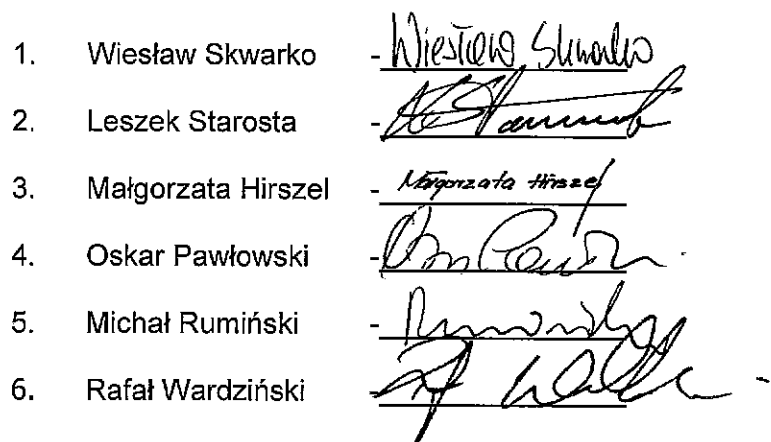 1. Wiesław Skwarko - Wiesław Skwarko
2. Leszek Starosta -
3. Małgorzata Hirszel - Małgorzata Hirszel
4. Oskar Pawłowski -
5. Michał Rumiński -
6. Rafał Wardziński -